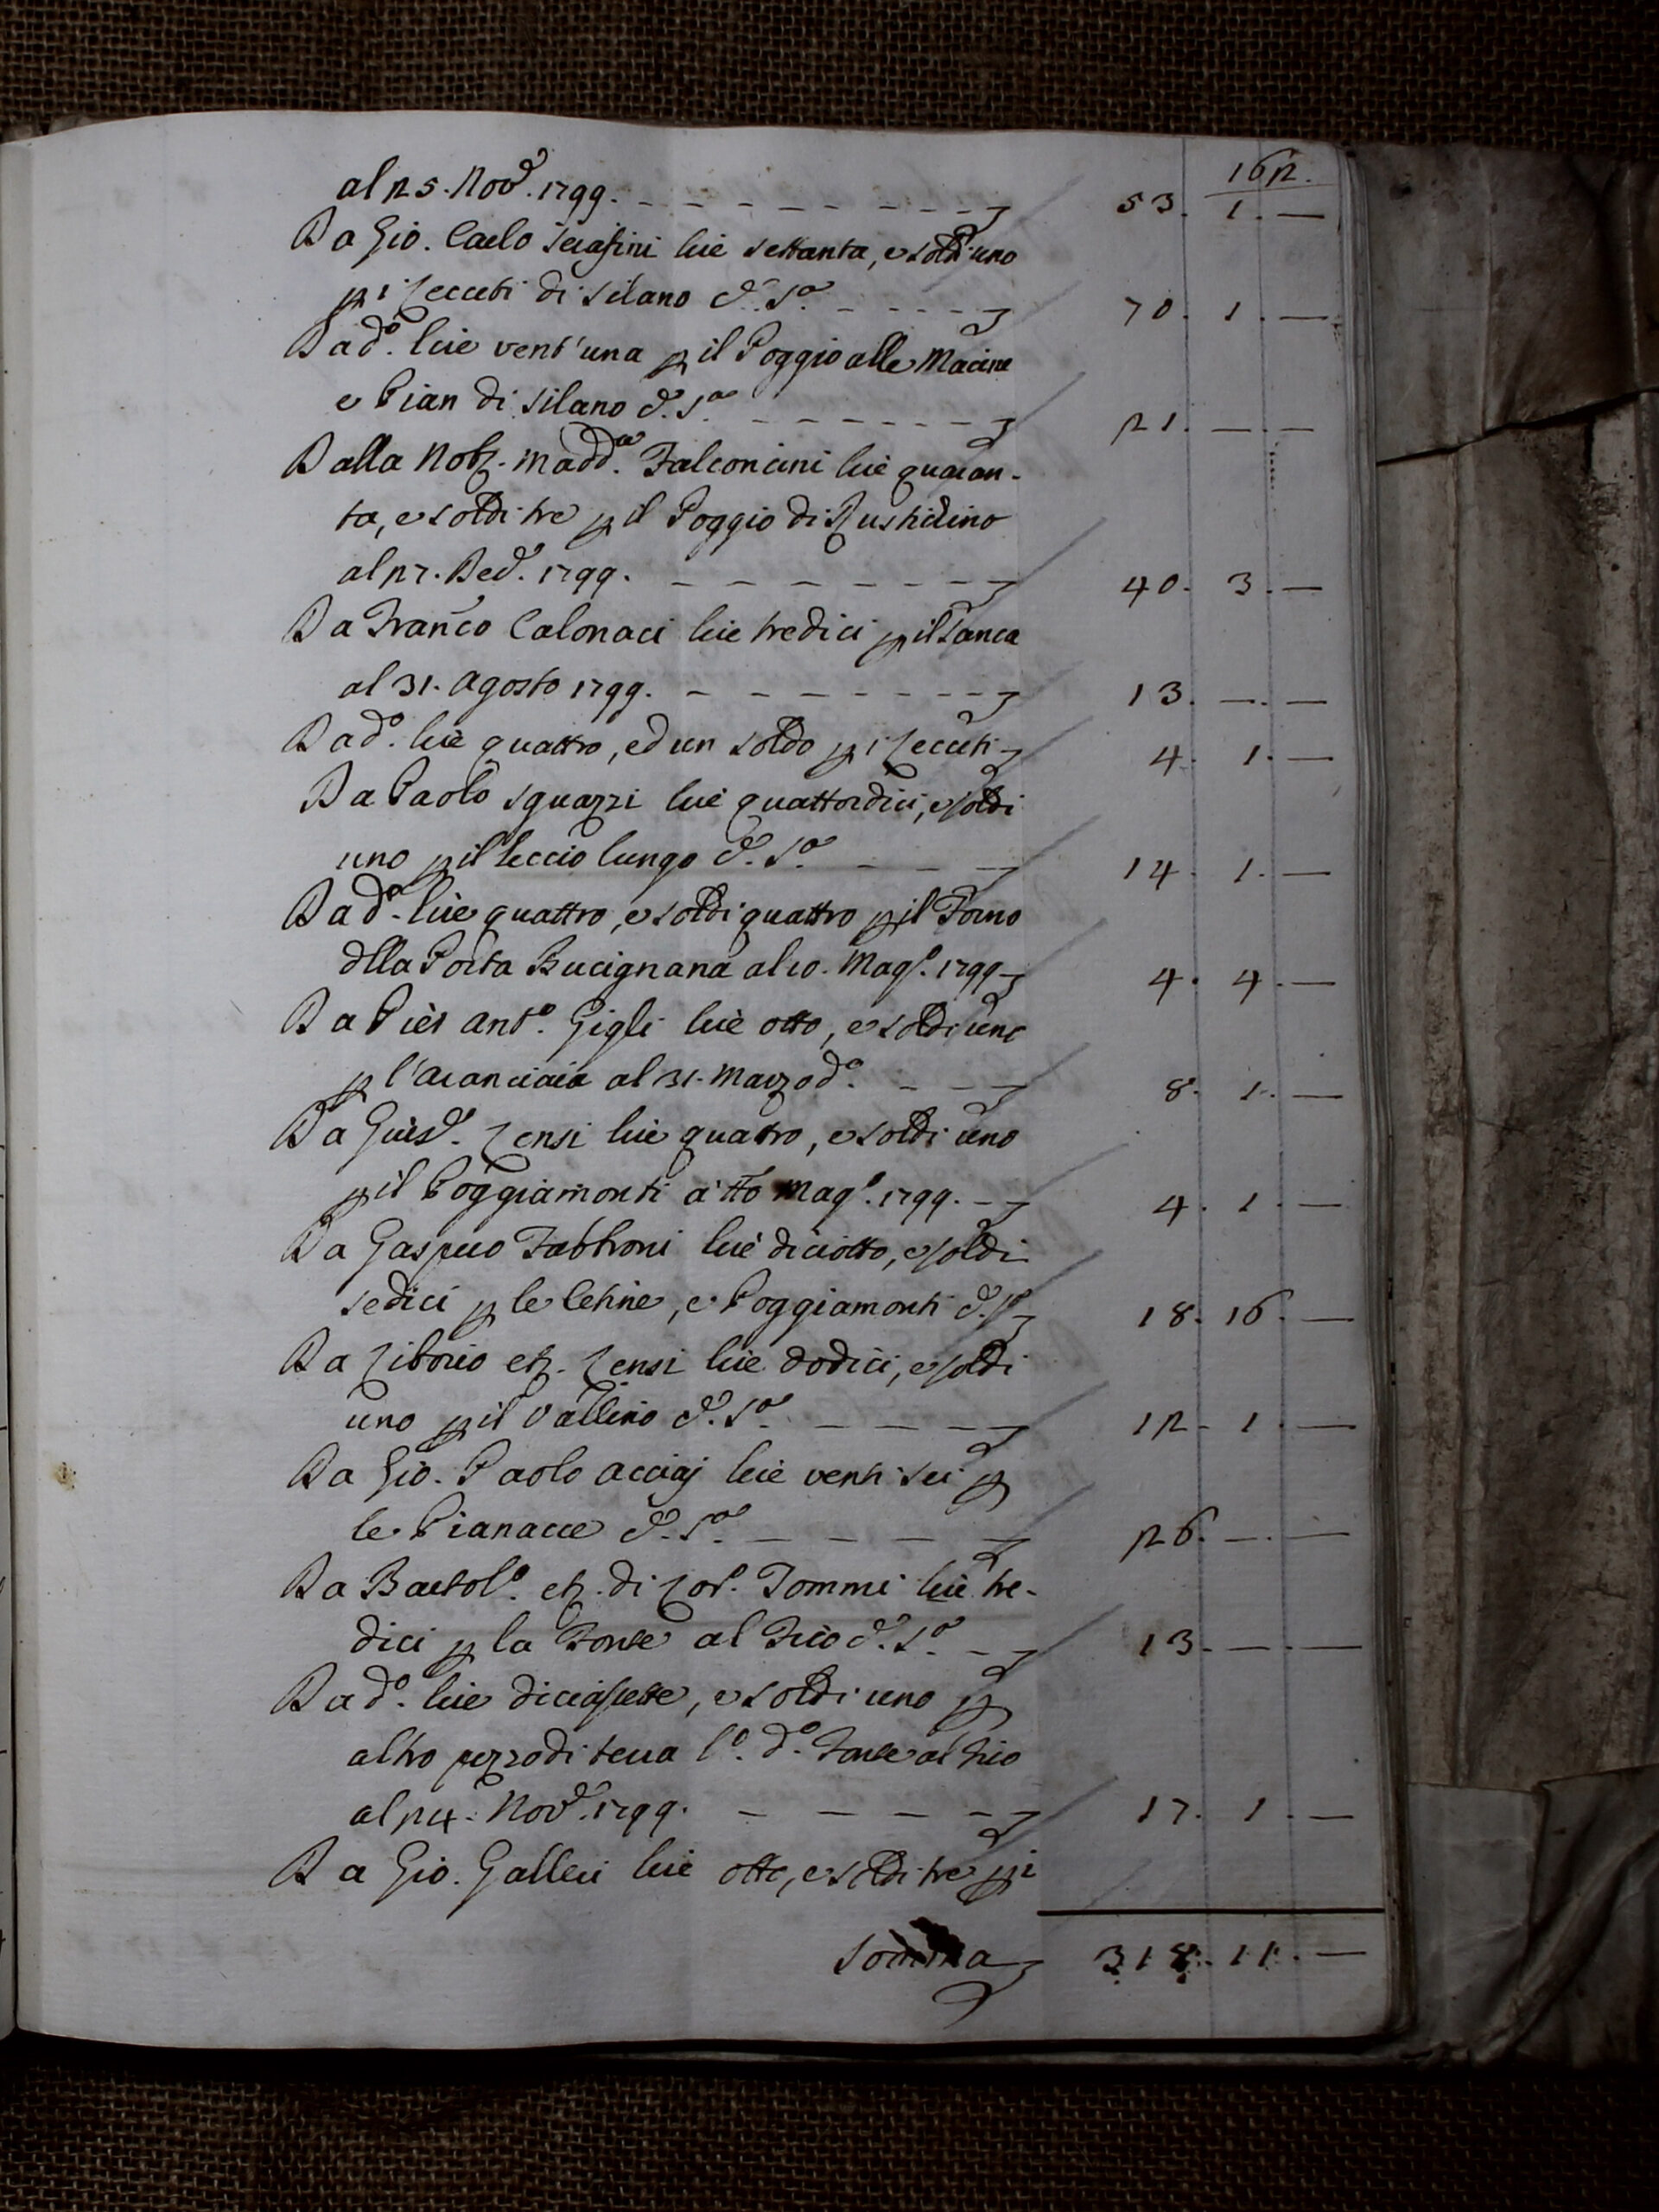 162.
al 25. Nov.e 1799. 53. 1. —
Da Gio. Carlo Serafini lire settanta, e soldi uno
p i Lecceti di Silano d. S.a 70. 1. —
Da d.o lire vent'una p il Poggio alle Macine
e Pian di Silano d. S.a 21. — —
Dalla Nob. Madd.a Falconcini lire quaran-
ta, e soldi tre p il Poggio di Rustichino
al 27. Dec.e 1799. 40. 3. —
Da Fran.co Calonaci lire tredici p il
al 31. Agosto 1799. 13. — —
Da d.o lire quattro, ed un soldo p i Lecceti 4. 1. —
Da Paolo Sguazzi lire quattordici, e soldi
uno p il Leccio lungo d. S.a 14. 1. —
Da d.o lire quattro, e soldi quattro p il Forno
dlla Porta Bucignana al 10. Mag.o 1799 4. 4. —
Da Pier Ant.o Gigli lire otto, e soldi uno
p l'Aranciaia al 31. Marzo d.o 8. 1. —
Da Gius.e Lensi lire quattro, e soldi uno
p il Poggiamonti a tto Mag.o 1799. 4. 1. —
Da Gaspero Fabbroni lire diciotto, e soldi
sedici p le Cetine, e Poggiamonti d. S.a 18. 16. —
Da Liborio et. Lensi lire dodici, e soldi
uno p il Vallino d. S.a 12. 1. —
Da Gio. Paolo Acciaj lire venti sei p
le Pianacce d. S.a 26. — —
Da Bartol.o et. di Lor.o Tommi lire tre-
dici p la Fonte al Frio d. S.a 13. — —
Da d.o lire diciassette, e soldi uno p
altro pezzo di terra l.o d.o Fonte al Frio
al 24. Nov.e 1799. 17. 1. —
Da Gio. Galleri lire otto, e soldi tre p i
Somma 318. 11. —